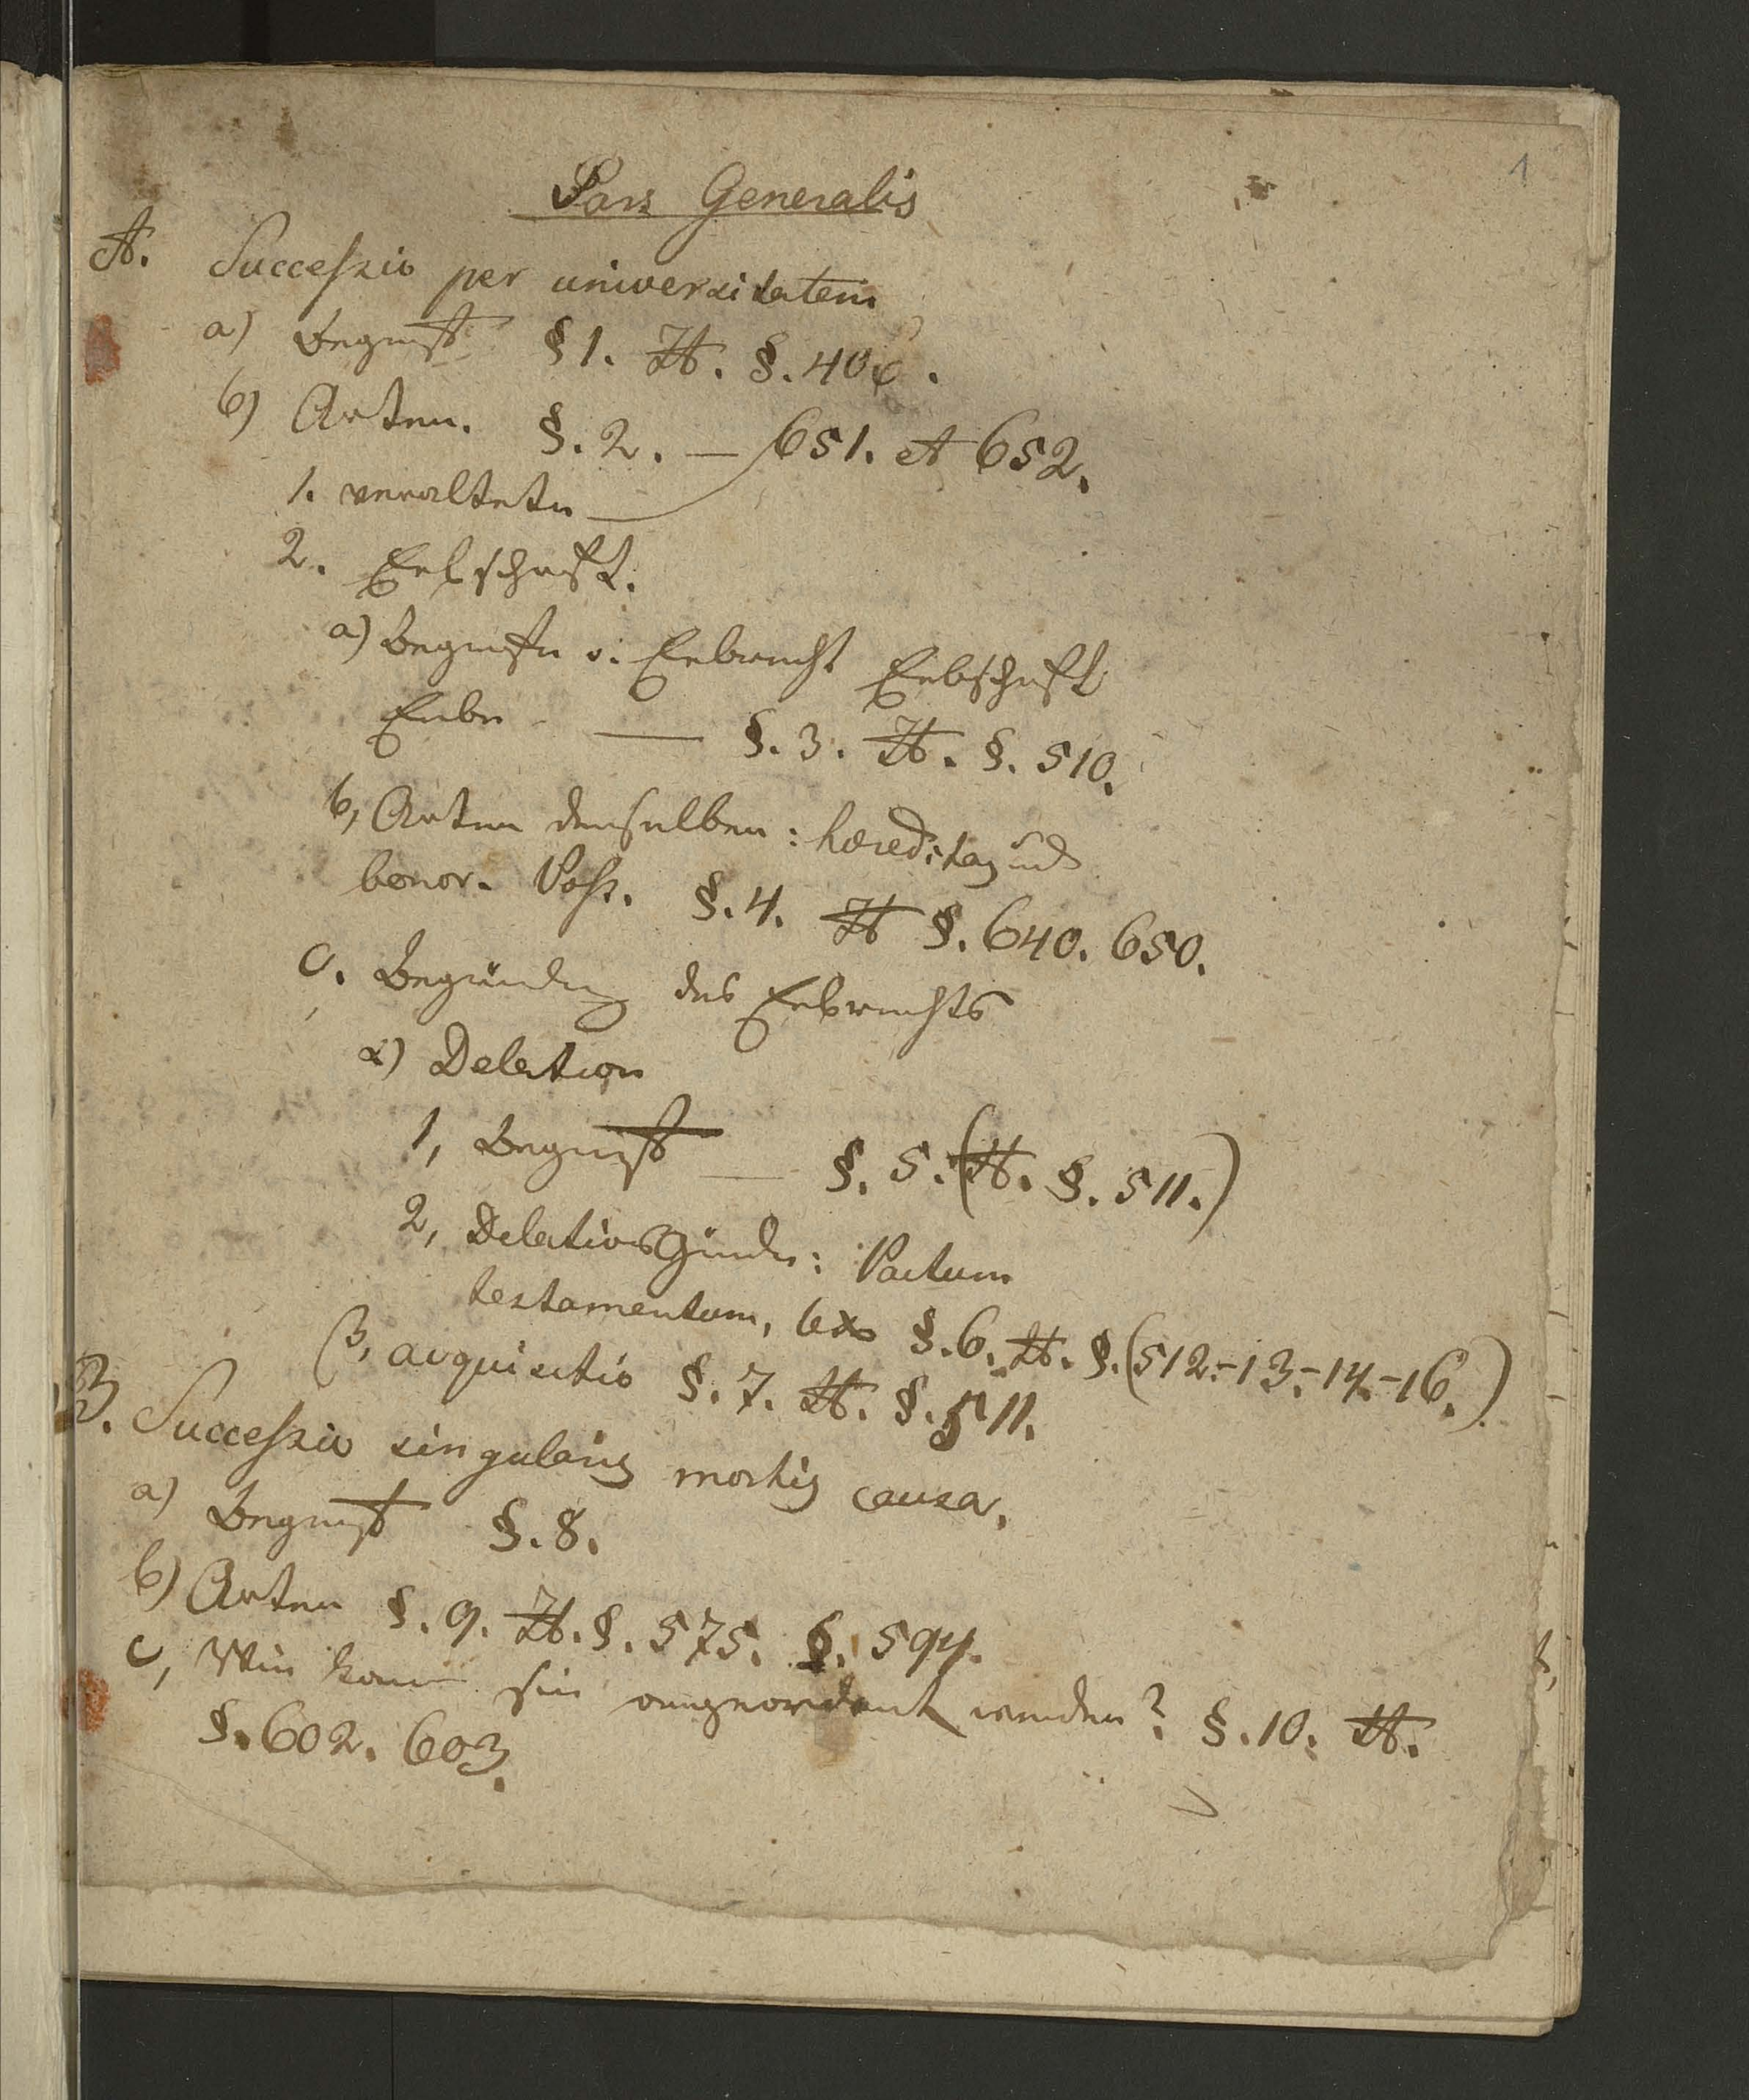 1
Pars Generalis
A. Successio per universitatem
a) Begriff §1. H. §. 406.
b) Arten. §. 2. — 651. et 652.
1. veraltete —
2. Erbschaft.
a) Begriffe v. Erbrecht Erbschaft
Erbe — §. 3. H. §. 510.
b, Arten derselben: hæreditas und
bonor. Poss. §. 4. H §. 640. 650.
c. Begründung des Erbrechts
α) Delation
1, Begriff — §. 5. (H. §. 511.)
2, Delationsgründe: Pactum
testamentum, lex §. 6. H. §. (512.-13.-14.-16.)
β, acquisitio §. 7. H. §. 511.
B. Successio singularis mortis causa.
a) Begriff §. 8.
b) Arten §. 9. H. §. 575. §. 594.
c, Wie kann sie angeordent werden? §. 10. H.
§. 602. 603.